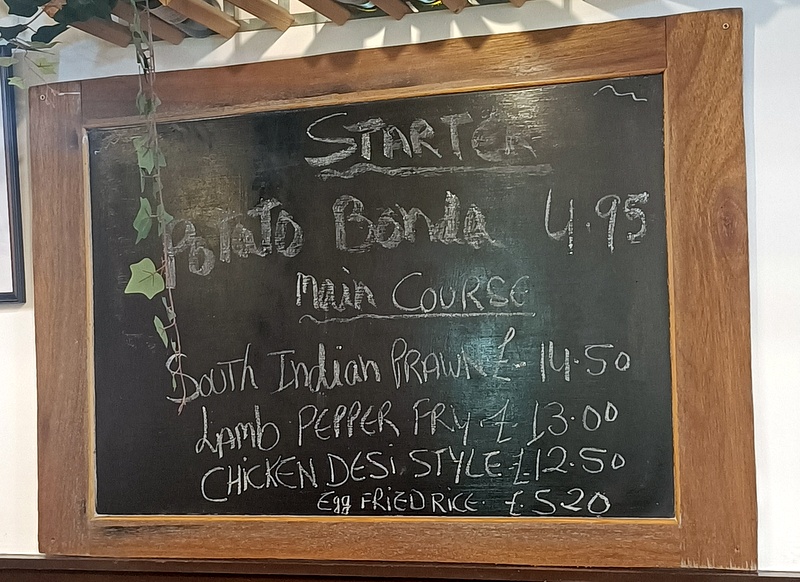 STARTER
Potato Bonda 4.95
Main COURSE
South Indian PRAWN £-14.50
LAMB PEPPER FRY £ 13.00
CHICKEN DESI STYLE £12.50
Egg FRIED RICE. £5.20